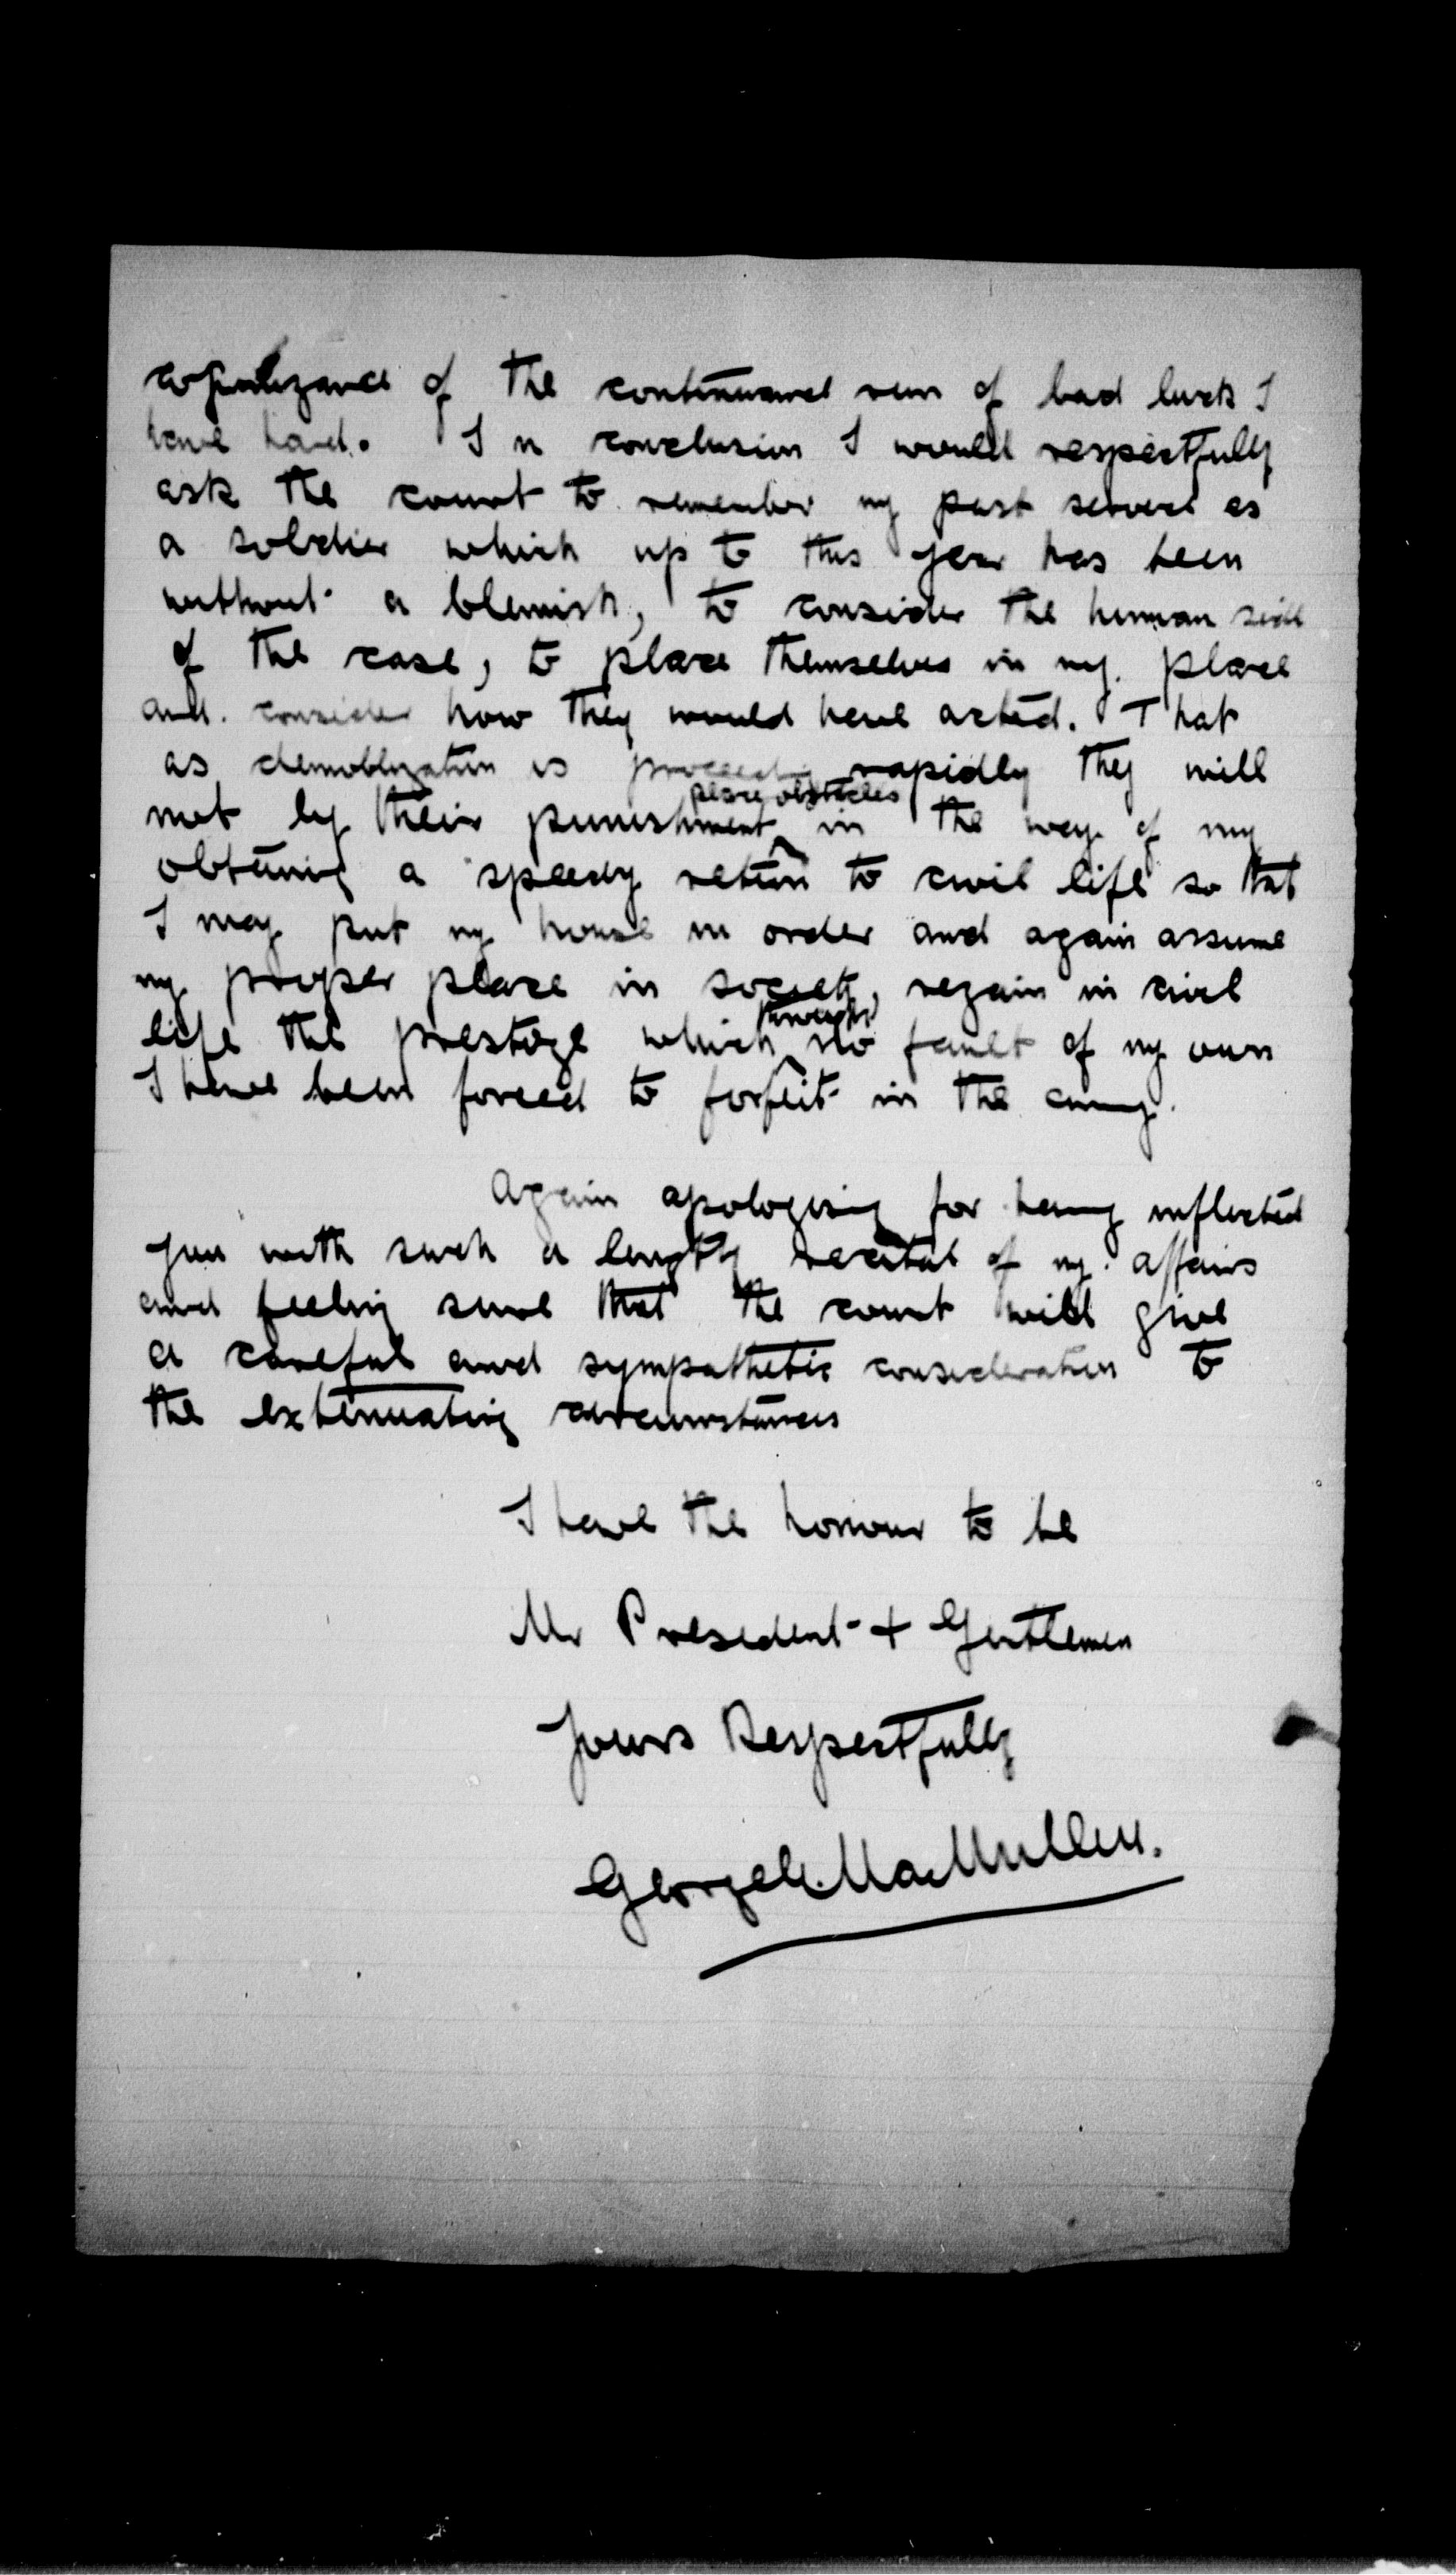 cognizance of the continued run of bad luck I
have had. In conclusion I would respectfully
ask the court to remember my past service as
a soldier which up to this year has been
without a blemish, to consider the human side
of the case, to place themselves in my place
and consider how they would have acted. That
as demoblization is proceeding rapidly they will
place obstacles
not by their punishment in the way of my
obtaing a speedy return to civil life so that
I may put my house in order and again assume
my proper place in society, regain in civil
through
life the prestige which no fault of my own
I have been forced to forfeit in the army.
Again apologising for having inflicted
you with such a lengthy recital of my affairs
and feeling sure that the court will give
a careful and sympathetic consideration to
the extenuating circumstances
I have the honour to be
Mr President + Gentlemen
Yours Respectfully
George MacMullen.